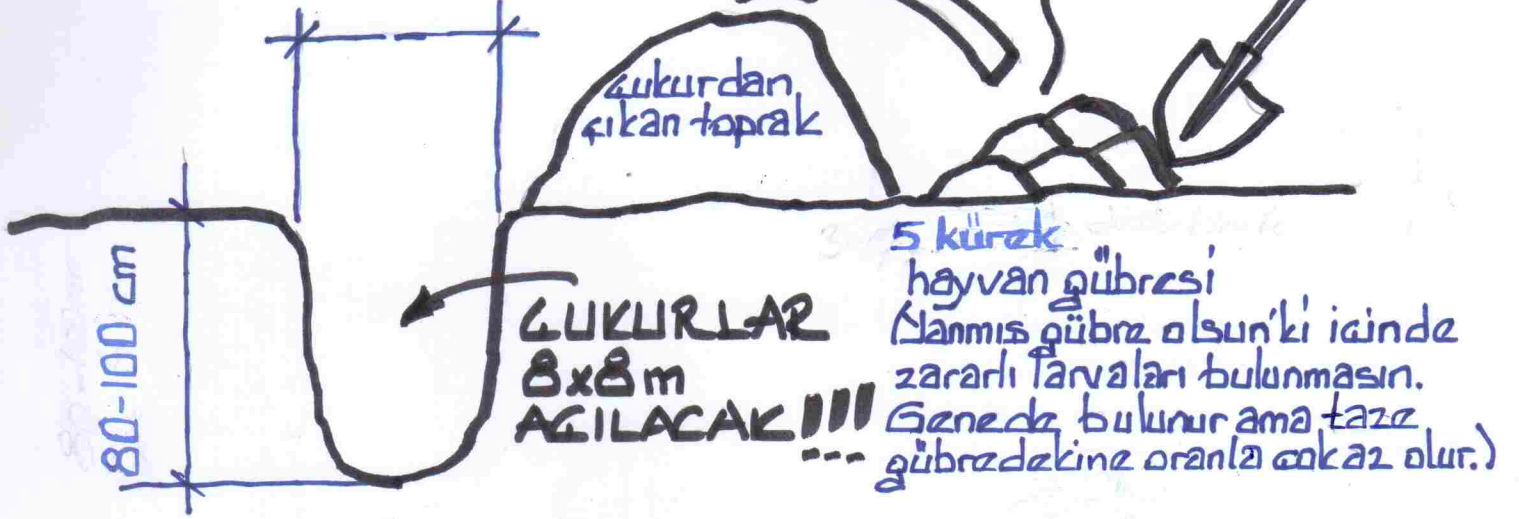 çukurdan
çıkan toprak
80-100 cm
ÇUKURLAR
8x8m
AÇILACAK!!!
5 kürek
hayvan gübresi
(Yanmış gübre olsun'ki içinde
zararlı larvaları bulunmasın.
Genede bulunur ama taze
gübredekine oranla çok az olur.)